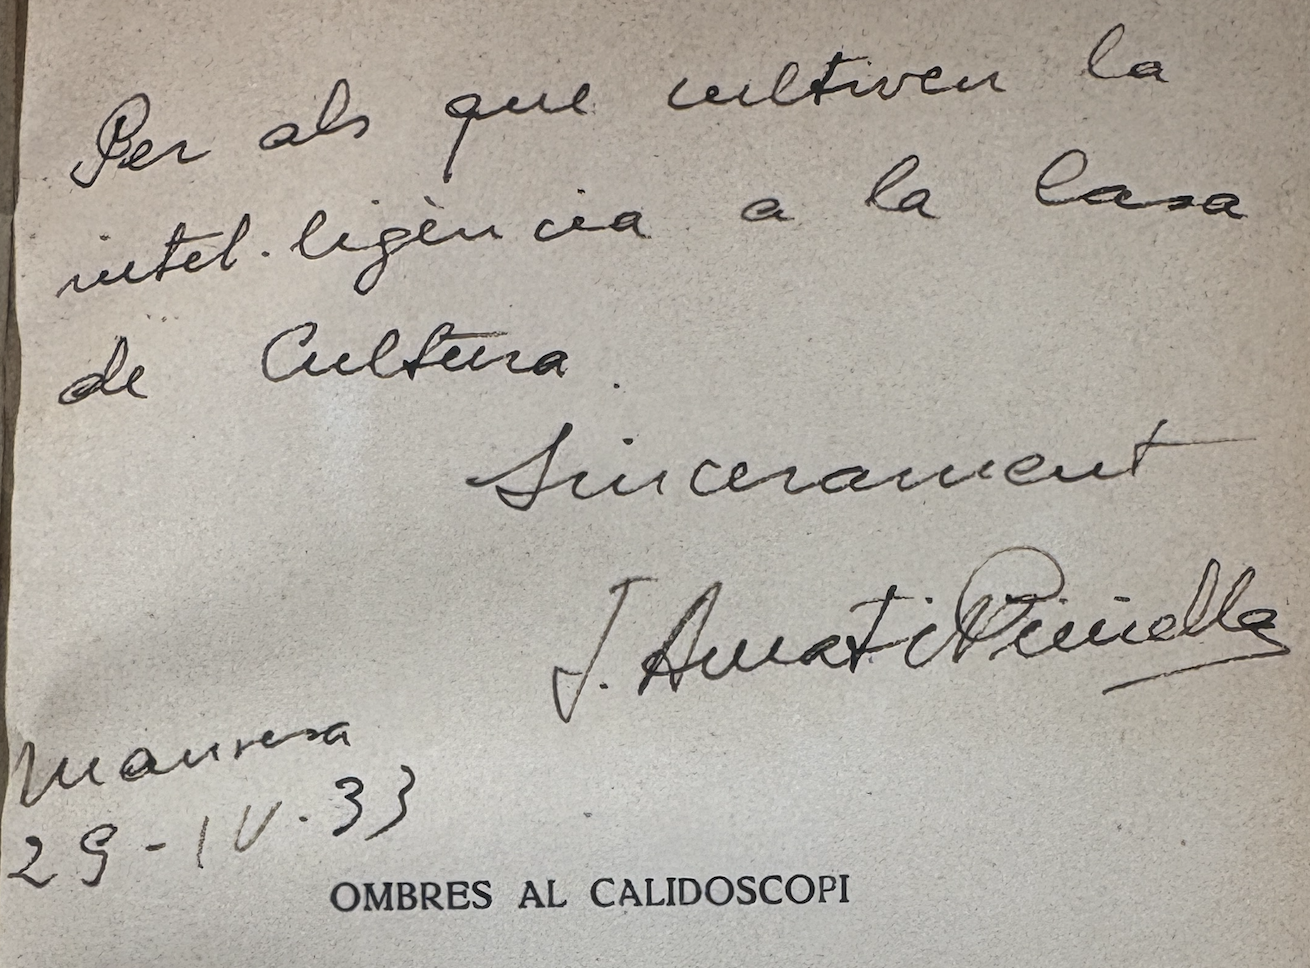 Per als que cultiven la
intel·ligència a la Casa
de Cultura.
Sincerament
J. Amat i Piniella
Manresa
29-IV-33
OMBRES AL CALIDOSCOPI